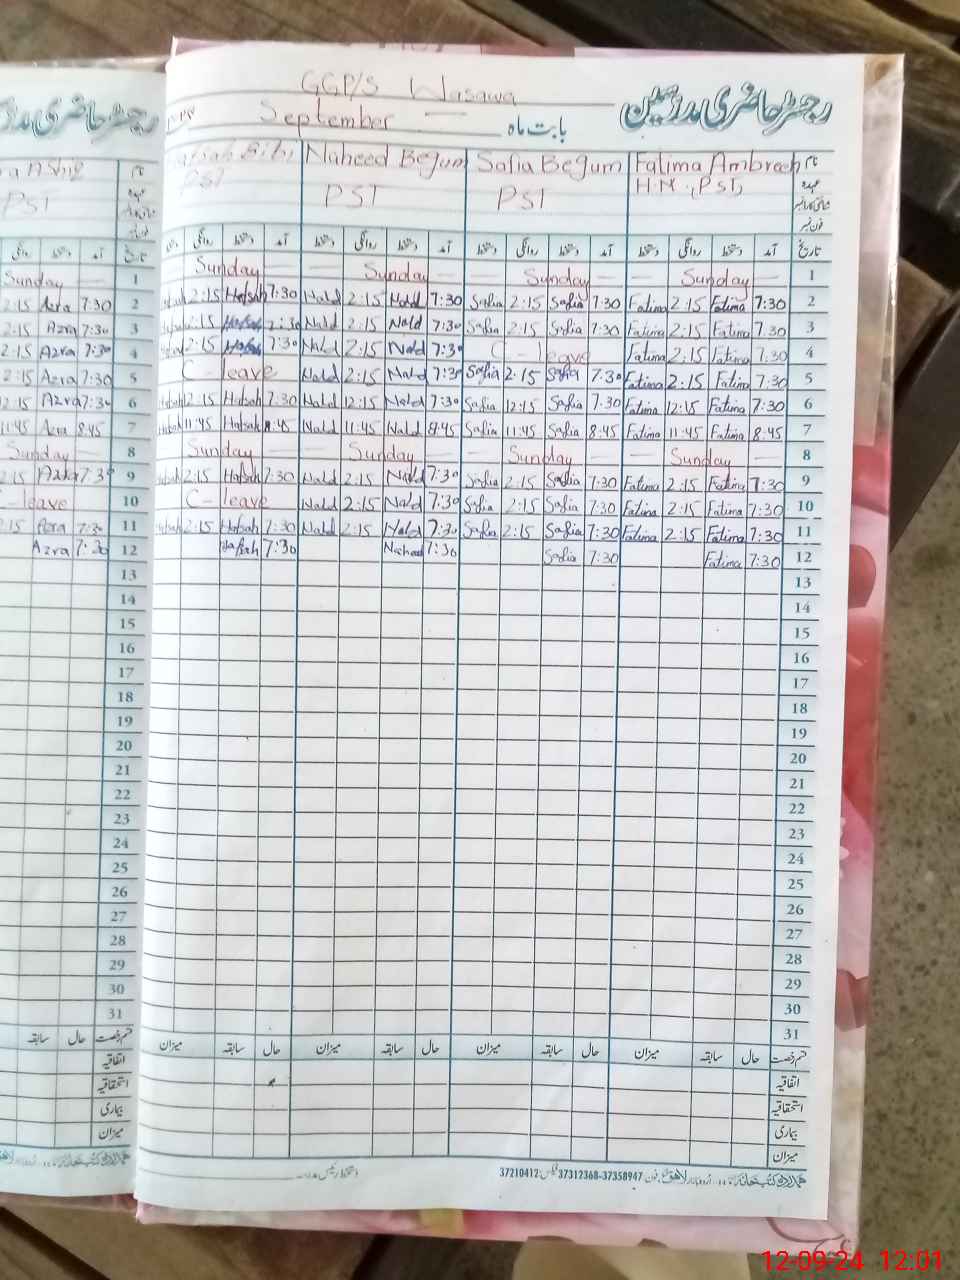 GGP/S Wasawa
رجسٹر حاضری مدرسین
September بابت ماہ
Hafsah Bibi Naheed Begum Safia Begum Fatima Ambreen نام
PST PST PST H.M.,(PST) عہدہ
شناختی کارڈ نمبر
فون نمبر
روانگی دستخط آمد دستخط روانگی دستخط آمد دستخط روانگی دستخط آمد دستخط روانگی دستخط آمد تاریخ
Sunday Sunday Sunday Sunday 1
Hafsah 2:15 Hafsah 7:30 Nahd 2:15 Nahd 7:30 Safia 2:15 Safia 7:30 Fatima 2:15 Fatima 7:30 2
2:15 Hafsah 2:30 Nahd 2:15 Nahd 7:30 Safia 2:15 Safia 7:30 Fatima 2:15 Fatima 7:30 3
2:15 Hafsah 7:30 Nahd 2:15 Nahd 7:30 C - leave Fatima 2:15 Fatima 7:30 4
C - leave Nahd 2:15 Nahd 7:30 Safia 2:15 Safia 7:30 Fatima 2:15 Fatima 7:30 5
Hafsah 12:15 Hafsah 7:30 Nahd 12:15 Nahd 7:30 Safia 12:15 Safia 7:30 Fatima 12:15 Fatima 7:30 6
Hafsah 11:45 Hafsah 8:45 Nahd 11:45 Nahd 8:45 Safia 11:45 Safia 8:45 Fatima 11:45 Fatima 8:45 7
Sunday Sunday Sunday Sunday 8
Hafsah 2:15 Hafsah 7:30 Nahd 2:15 Nahd 7:30 Safia 2:15 Safia 7:30 Fatima 2:15 Fatima 7:30 9
C - leave Nahd 2:15 Nahd 7:30 Safia 2:15 Safia 7:30 Fatima 2:15 Fatima 7:30 10
Hafsah 2:15 Hafsah 7:30 Nahd 2:15 Nahd 7:30 Safia 2:15 Safia 7:30 Fatima 2:15 Fatima 7:30 11
Hafsah 7:30 Naheed 7:30 Safia 7:30 Fatima 7:30 12
13
14
15
16
17
18
19
20
21
22
23
24
25
26
27
28
29
30
31
میزان سابقہ حال میزان سابقہ حال میزان سابقہ حال میزان سابقہ حال قسم رخصت
اتفاقیہ
استحقاقیہ
بیماری
میزان
37210412 فیکس 37312368-37358947 فون
رجسٹر حاضری مدر
ra Ashiq نام
PST عہدہ
شناختی کارڈ نمبر
فون نمبر
روانگی دستخط آمد تاریخ
Sunday 1
2:15 Azra 7:30 2
2:15 Azra 7:30 3
2:15 Azra 7:30 4
2:15 Azra 7:30 5
12:15 Azra 7:30 6
11:45 Azra 8:45 7
Sunday 8
2:15 Azra 7:30 9
C - leave 10
2:15 Azra 7:30 11
Azra 7:30 12
13
14
15
16
17
18
19
20
21
22
23
24
25
26
27
28
29
30
31
سابقہ حال قسم رخصت
اتفاقیہ
استحقاقیہ
بیماری
میزان
12-09-24 12:01